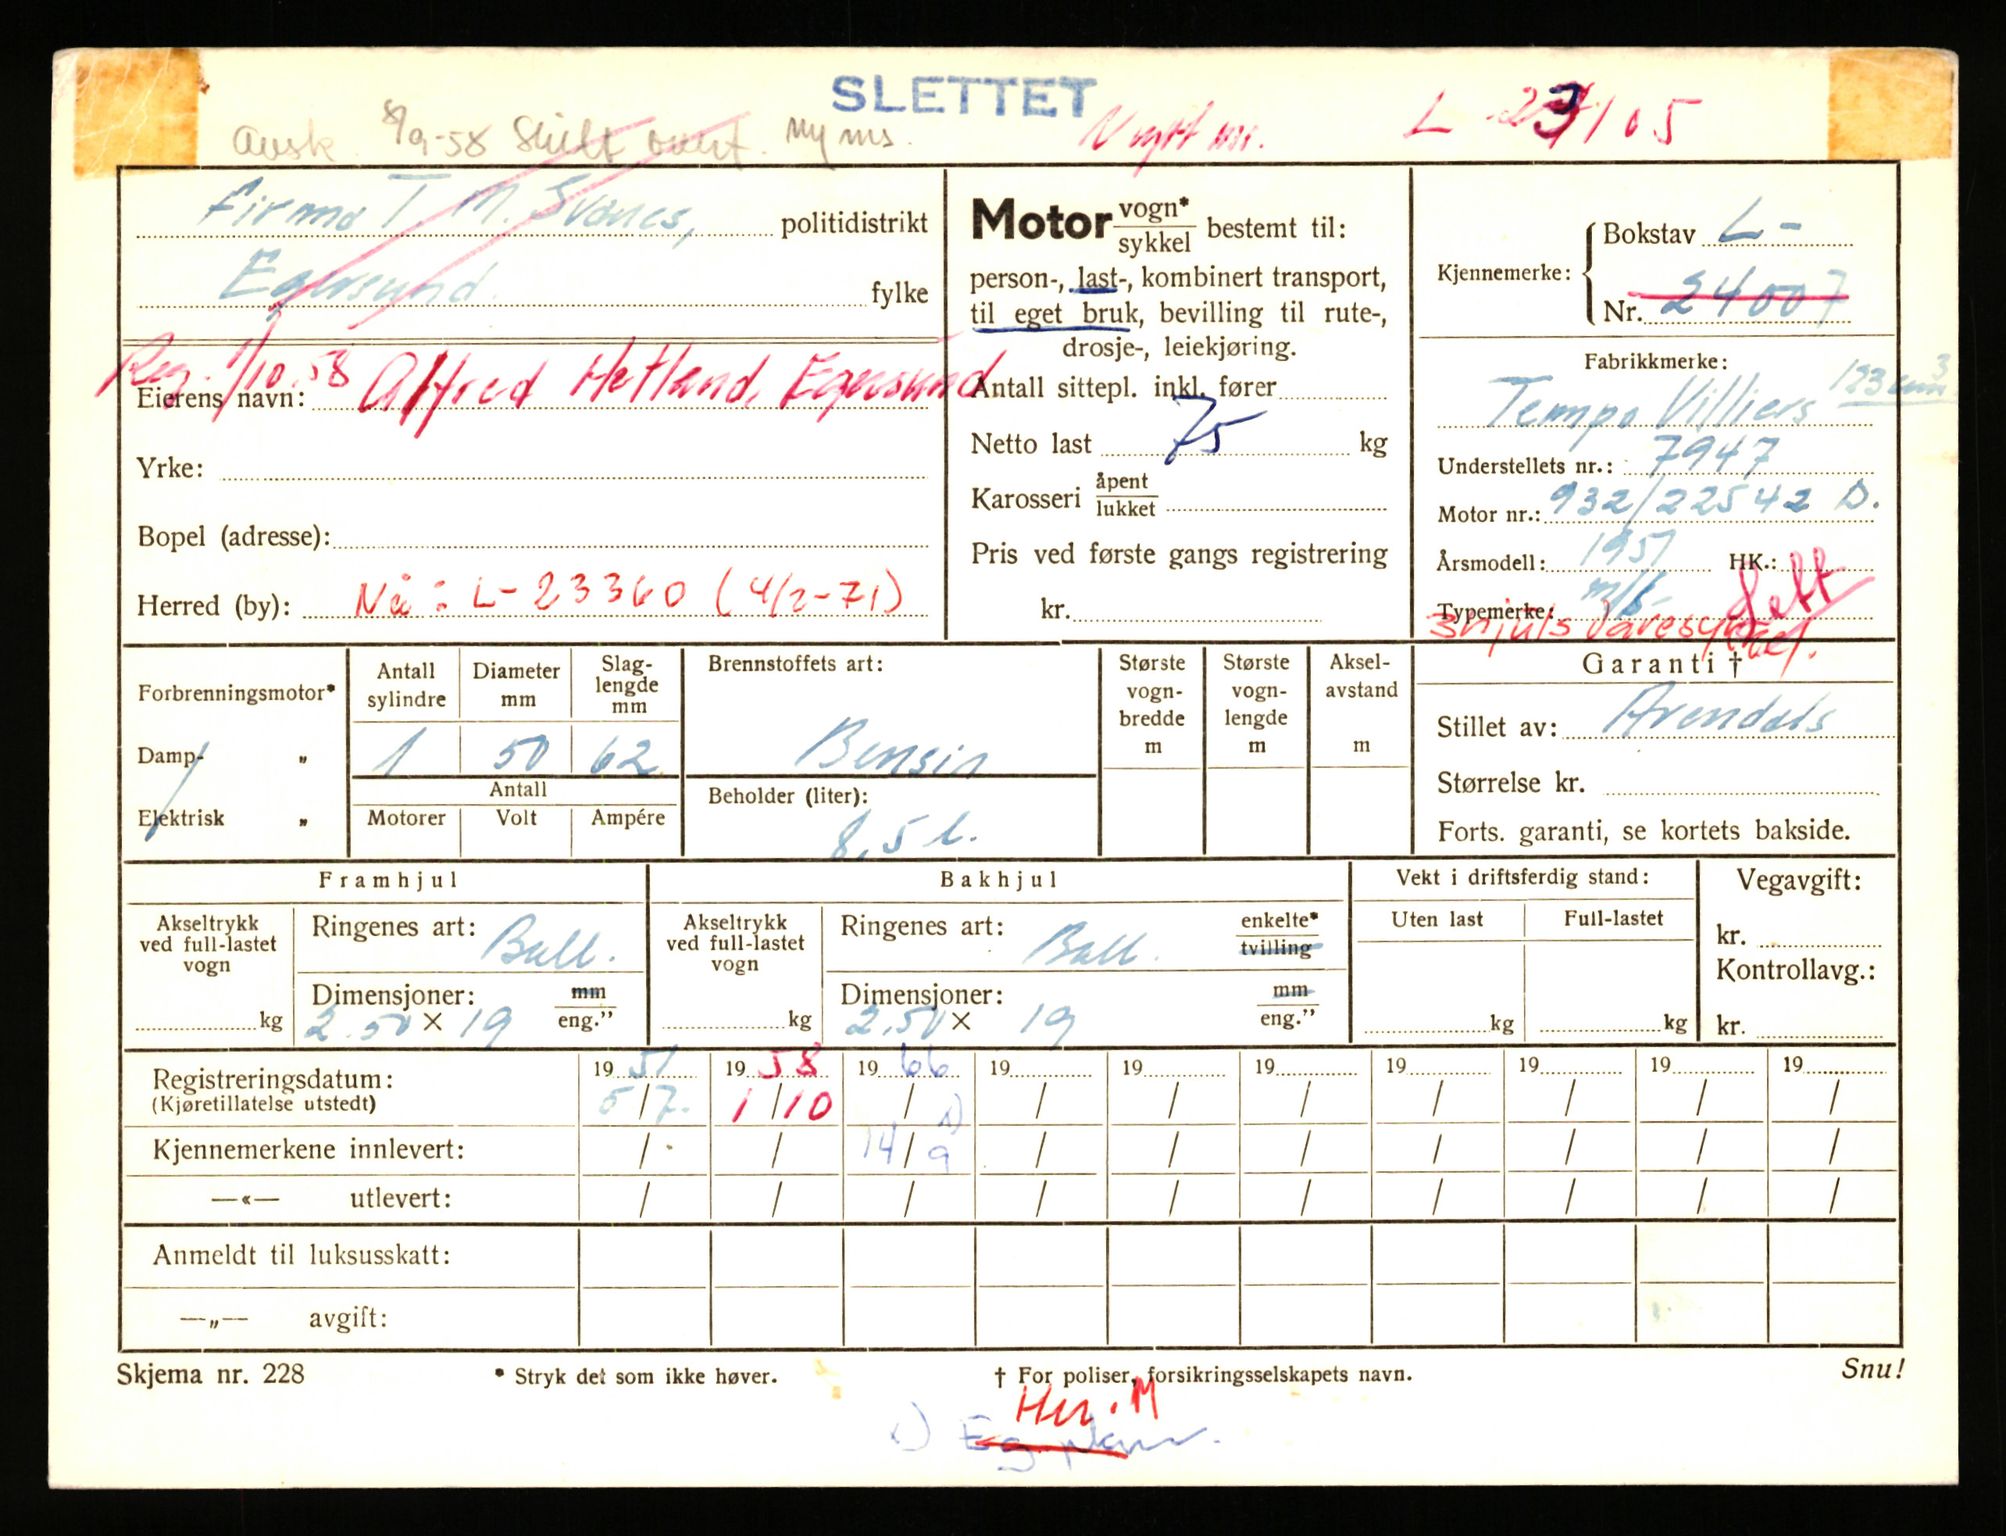 SLETTET
avsk. 8/9-58 Skilt ny ms.
Nytt nr. L - 23105
Firma T. M. Svanes, politidistrikt
Egersund. fylke
Reg. 1/10.58
Eierens navn: Alfred Hetland, Egersund
Yrke:
Bopel (adresse):
Herred (by): Nå: L-23360 (4/2-71)
Motor vogn* / sykkel bestemt til:
person-, last-, kombinert transport,
til eget bruk, bevilling til rute-,
drosje-, leiekjøring.
Antall sittepl. inkl. fører
Netto last 75 kg
Karosseri åpent / lukket
Pris ved første gangs registrering
kr.
Kjennemerke: Bokstav L-
Nr. 24007
Fabrikkmerke:
Tempo Villiers 123 cm³
Understellets nr.: 7947
Motor nr.: 932/22542 D.
Årsmodell: 1951 HK.:
Typemerke: Lett
3hjuls varesykkel.
Forbrenningsmotor*
Damp- „
Elektrisk „
Antall sylindre Diameter mm Slag-lengde mm
1 50 62
Antall
Motorer Volt Ampére
Brennstoffets art:
Bensin
Beholder (liter):
8,5 l.
Største vogn-bredde m
Største vogn-lengde m
Aksel-avstand m
Garanti †
Stillet av: Arendals
Størrelse kr.
Forts. garanti, se kortets bakside.
Framhjul
Akseltrykk ved full-lastet vogn
kg
Ringenes art: Ball.
Dimensjoner: mm / eng."
2.50 × 19
Bakhjul
Akseltrykk ved full-lastet vogn
kg
Ringenes art: Ball. enkelte* / tvilling
Dimensjoner: mm / eng."
2.50 × 19
Vekt i driftsferdig stand:
Uten last Full-lastet
kg kg
Vegavgift:
kr.
Kontrollavg.:
kr.
Registreringsdatum: 1951 1958 1966 19 19 19 19 19 19 19
(Kjøretillatelse utstedt) 5/7. 1/10 / 1) / / / / / / /
Kjennemerkene innlevert: / / 14/9 / / / / / / /
—«— utlevert: / / / / / / / / / /
Anmeldt til luksusskatt:
—„— avgift:
Skjema nr. 228 * Stryk det som ikke høver. † For poliser, forsikringsselskapets navn. Snu!
Her. M
1) Eg.